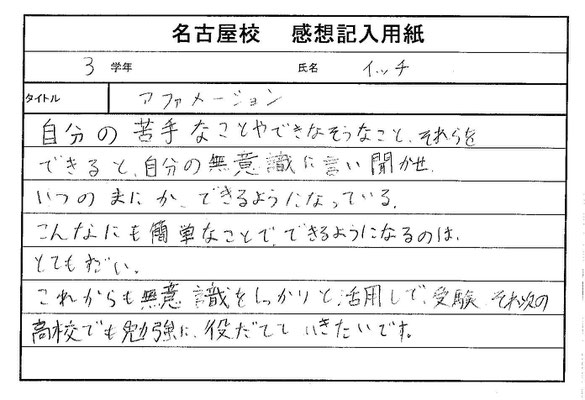 名古屋校 感想記入用紙
3 学年 氏名 イッチ
タイトル アファメーション
自分の苦手なことやできなそうなこと、それらを
できると、自分の無意識に言い聞かせ、
いつのまにか、できるようになっている。
こんなにも簡単なことで、できるようになるのは、
とてもすごい。
これからも無意識をしっかりと、活用しで、受験、それ次の
高校でも勉強に、役だてていきたいです。